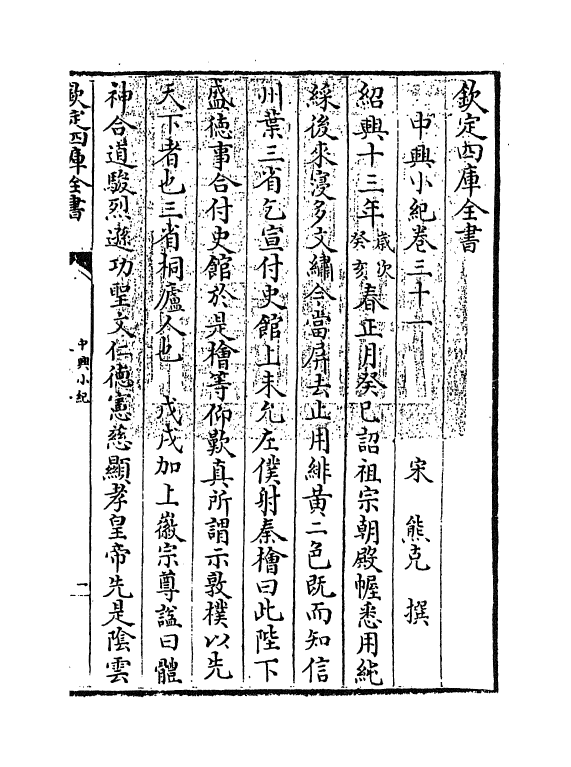 欽定四庫全書
中興小紀卷三十一
宋 熊克 撰
紹興十三年歲次癸亥春正月癸巳詔祖宗朝殿幄悉用純
綵後來寖多文繡今當屏去止用緋黄二色既而知信
州葉三省乞宣付史館上未允左僕射秦檜曰此陛下
盛徳事合付史館於是檜等仰歎真所謂示敦樸以先
天下者也三省桐廬人也 戊戌加上徽宗尊謚曰體
神合道駿烈遜功聖文仁德憲慈顯孝皇帝先是陰雲
欽定四庫全書
中興小紀
一